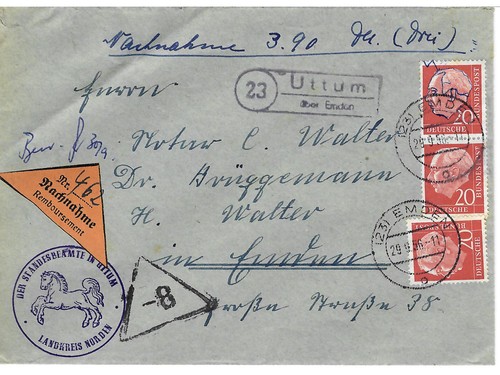 Nachnahme 3.90 DM. (Drei)
Herrn
23
Uttum
über Emden
Notar C. Walter
Dr. Brüggemann
H. Walter
in Emden
Große Straße 38.
Nr. 462
Nachnahme
Remboursement
DER STANDESBEAMTE IN UTTUM
LANDKREIS NORDEN
-8
20
DEUTSCHE BUNDESPOST
20
DEUTSCHE BUNDESPOST
20
DEUTSCHE BUNDESPOST
(23) EMDEN
29.9.56.-11
a
(23) EMDEN
29.9.56.-11